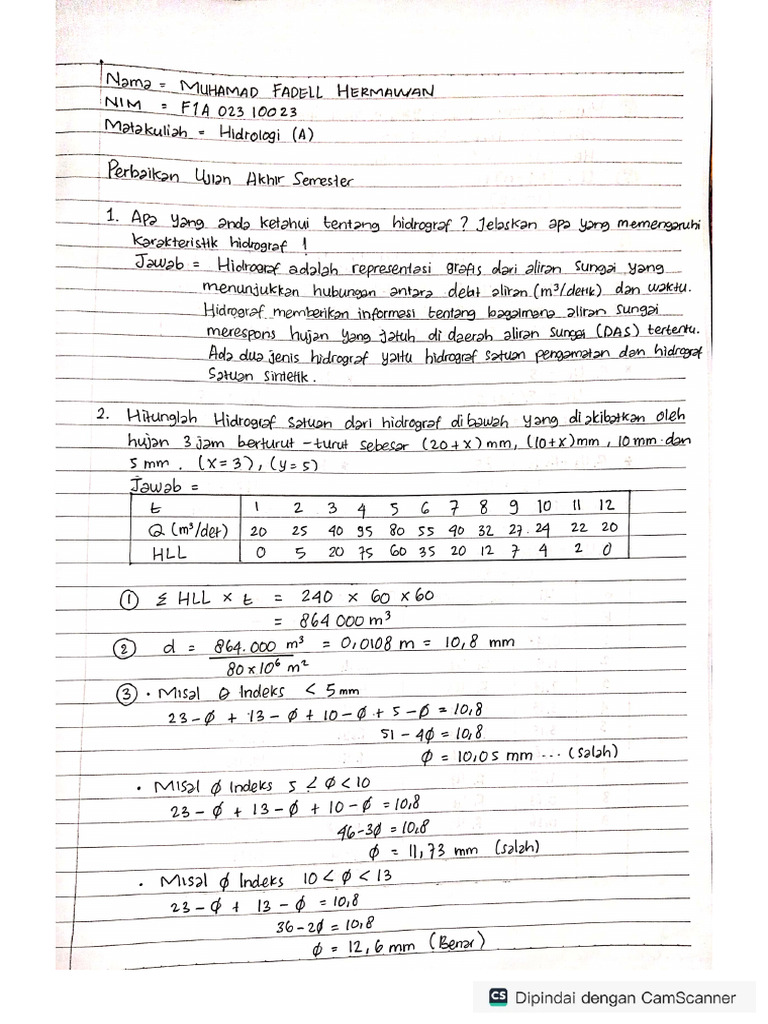 Nama = MUHAMAD FADELL HERMAWAN
NIM = F1A 023 10023
Matakuliah = Hidrologi (A)
Perbaikan Ujian Akhir Semester
1. Apa yang anda ketahui tentang hidrograf ? Jelaskan apa yang memengaruhi
karakteristik hidrograf !
Jawab = Hidrograf adalah representasi grafis dari aliran sungai yang
menunjukkan hubungan antara debt aliran (m³/detik) dan waktu.
Hidrograf memberikan informasi tentang bagaimana aliran sungai
merespons hujan yang jatuh di daerah aliran sungai (DAS) tertentu.
Ada dua jenis hidrograf yaitu hidrograf satuan pengamatan dan hidrograf
Satuan sintetik.
2. Hitunglah Hidrograf satuan dari hidrograf dibawah yang diakibatkan oleh
hujan 3 jam berturut-turut sebesar (20+x) mm, (10+x) mm, 10 mm dan
5 mm. (x=3), (y=5)
Jawab =
t 1 2 3 4 5 6 7 8 9 10 11 12
Q (m³/det) 20 25 40 95 80 55 40 32 27 24 22 20
HLL 0 5 20 75 60 35 20 12 7 4 2 0
① Σ HLL × t = 240 × 60 × 60
= 864 000 m³
② d = 864.000 m³ = 0,0108 m = 10,8 mm
80 × 10⁶ m²
③ • Misal θ Indeks < 5 mm
23 - ϕ + 13 - ϕ + 10 - ϕ + 5 - ϕ = 10,8
51 - 4ϕ = 10,8
ϕ = 10,05 mm ... (salah)
• Misal ϕ Indeks 5 < ϕ < 10
23 - ϕ + 13 - ϕ + 10 - ϕ = 10,8
46 - 3ϕ = 10,8
ϕ = 11,73 mm (salah)
• Misal ϕ Indeks 10 < ϕ < 13
23 - ϕ + 13 - ϕ = 10,8
36 - 2ϕ = 10,8
ϕ = 12,6 mm (Benar)
CS Dipindai dengan CamScanner